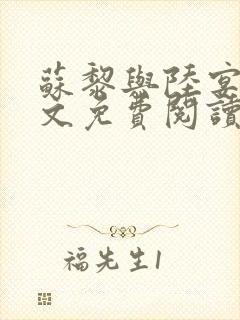 蘇黎與陸宴
文免費閱讀
福先生1